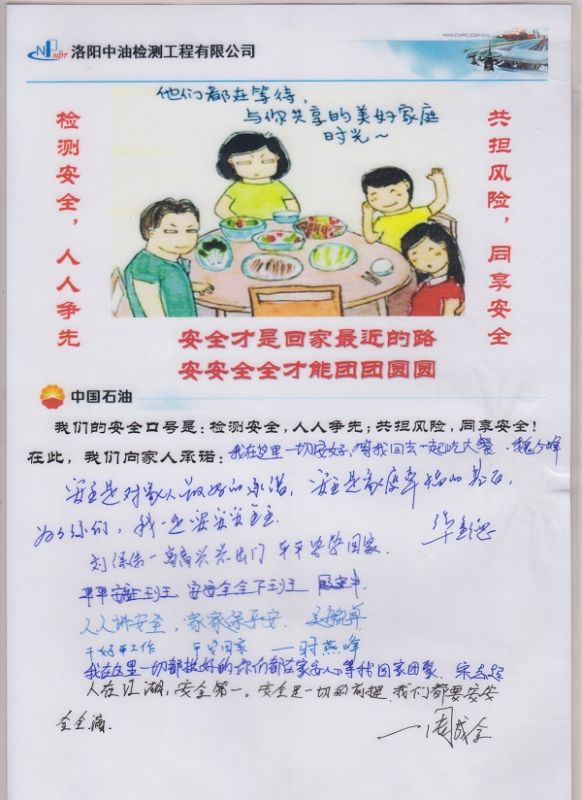 WWW.CNPC.COM.CN
NDT 洛阳中油检测工程有限公司
他们都在等待,
与你共享的美好家庭
时光~
检测安全，人人争先
共担风险，同享安全
安全才是回家最近的路
安安全全才能团团圆圆
中国石油
我们的安全口号是：检测安全，人人争先；共担风险，同享安全！
在此，我们向家人承诺：我在这里一切安好，等我回去一起吃大餐
安全是对家人最好的承诺，安全是家庭幸福的基石，
为了你们，我一定安安全全
一高高兴兴出门 平平安安回家.
平平安安上班 安安全全下班
人人讲安全，家家保平安.
干好本工作 平安回家 ——时燕峰
我在这里一切都挺好的你们都在家安心等我回家团聚.
人在江湖,安全第一,安全是一切的前提,我们都要安安
全全滴.
—周成全